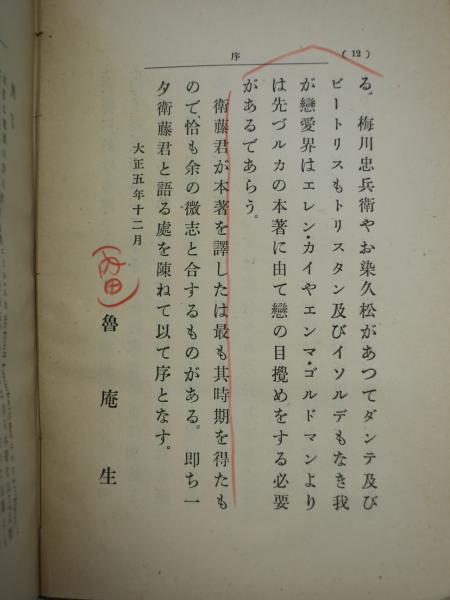 序
(12)
る。梅川忠兵衞やお染久松があつてダンテ及び
ビートリスもトリスタン及びイソルデもなき我
が戀愛界はエレン・カイやエンマ・ゴルドマンより
は先づルカの本著に由て戀の目攪めをする必要
があるであらう。
衞藤君が本著を譯したは最も其時期を得たも
ので、恰も余の微志と合するものがある。卽ち一
夕衞藤君と語る處を陳ねて以て序となす。
大正五年十二月
(内田)
魯庵生